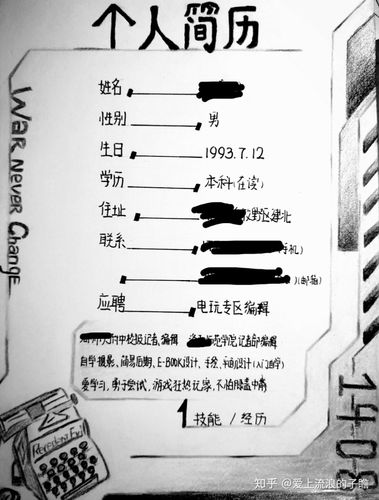 个人简历
War Never Change
姓名
性别 男
生日 1993.7.12
学历 本科(在读)
住址 牧野区建北
联系 手机)
)(邮箱)
应聘 电玩专区编辑
校报记者、编辑 范学院记者部编辑
自学摄影、简易后期、E-BOOK设计、手绘、平面设计(入门自学)
爱学习，勇于尝试，游戏狂热玩家，不怕膝盖中箭
1 技能 / 经历
Resident Evil
1408
知乎 @爱上流浪的子瞻